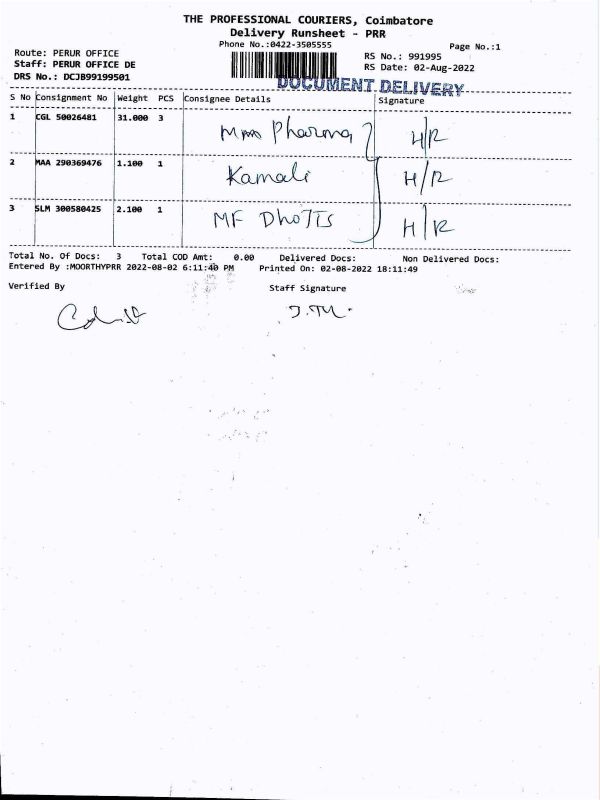 THE PROFESSIONAL COURIERS, Coimbatore
Delivery Runsheet - PRR
Phone No.:0422-3505555
Page No.:1
Route: PERUR OFFICE
RS No.: 991995
Staff: PERUR OFFICE DE
RS Date: 02-Aug-2022
DRS No.: DCJB99199501
DOCUMENT DELIVERY
S No Consignment No Weight PCS Consignee Details Signature
1 CGL 50026481 31.000 3
Pharma H/R
2 MAA 290369476 1.100 1
Kamali H/R
3 SLM 300580425 2.100 1
MF DhoTIS H/R
Total No. Of Docs: 3 Total COD Amt: 0.00 Delivered Docs: Non Delivered Docs:
Entered By :MOORTHYPRR 2022-08-02 6:11:40 PM Printed On: 02-08-2022 18:11:49
Verified By Staff Signature